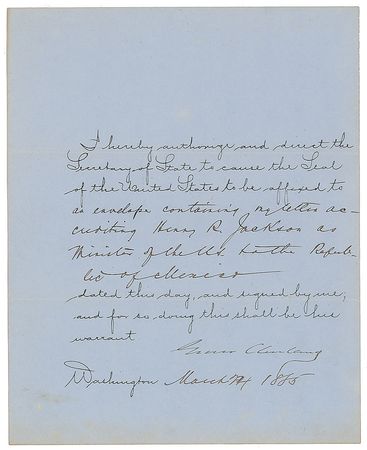 I hereby authorize and direct the
Secretary of State to cause the Seal
of the United States to be affixed to
an envelope containing my letter ac-
crediting Henry R. Jackson as
Minister of the U.S. to the Repub-
lic of Mexico
dated this day, and signed by me,
and for so doing this shall be his
warrant
Grover Cleveland
Washington March 1885